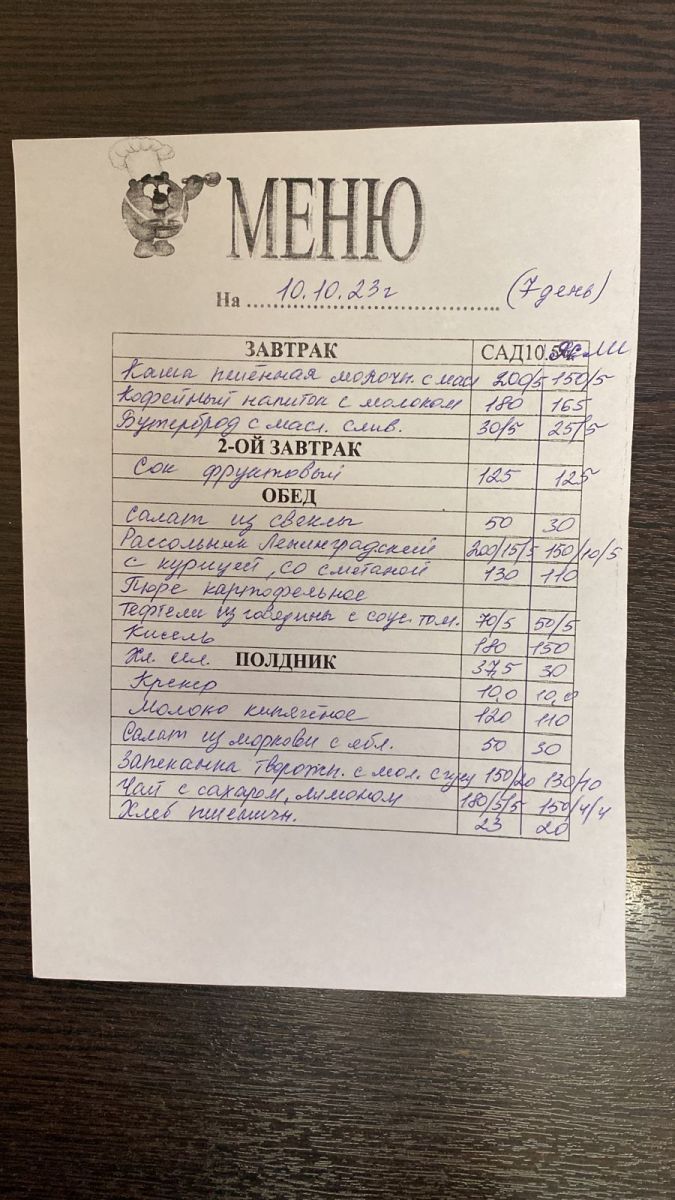 МЕНЮ
На 10.10.23г (7 день)
ЗАВТРАК САД10.5ч ЯСЛИ
Каша пшённая молочн. с масл 200/5 150/5
Кофейный напиток с молоком 180 165
Бутерброд с масл. слив. 30/5 25/5
2-ОЙ ЗАВТРАК
Сок фруктовый 125 125
ОБЕД
Салат из свеклы 50 30
Рассольник Ленинградский 200/15/5 150/10/5
с курицей, со сметаной 130 110
Пюре картофельное
Тефтели из говядины с соус. том. 70/5 50/5
Кисель 180 150
Хл. ПОЛДНИК 37,5 30
10,0 10,0
Молоко кипячёное 120 110
Салат из моркови с ябл. 50 30
Запеканка творожн. с мол. сгущ 150/20 130/10
Чай с сахаром, лимоном 180/5/5 150/4/4
Хлеб пшеничн. 23 20